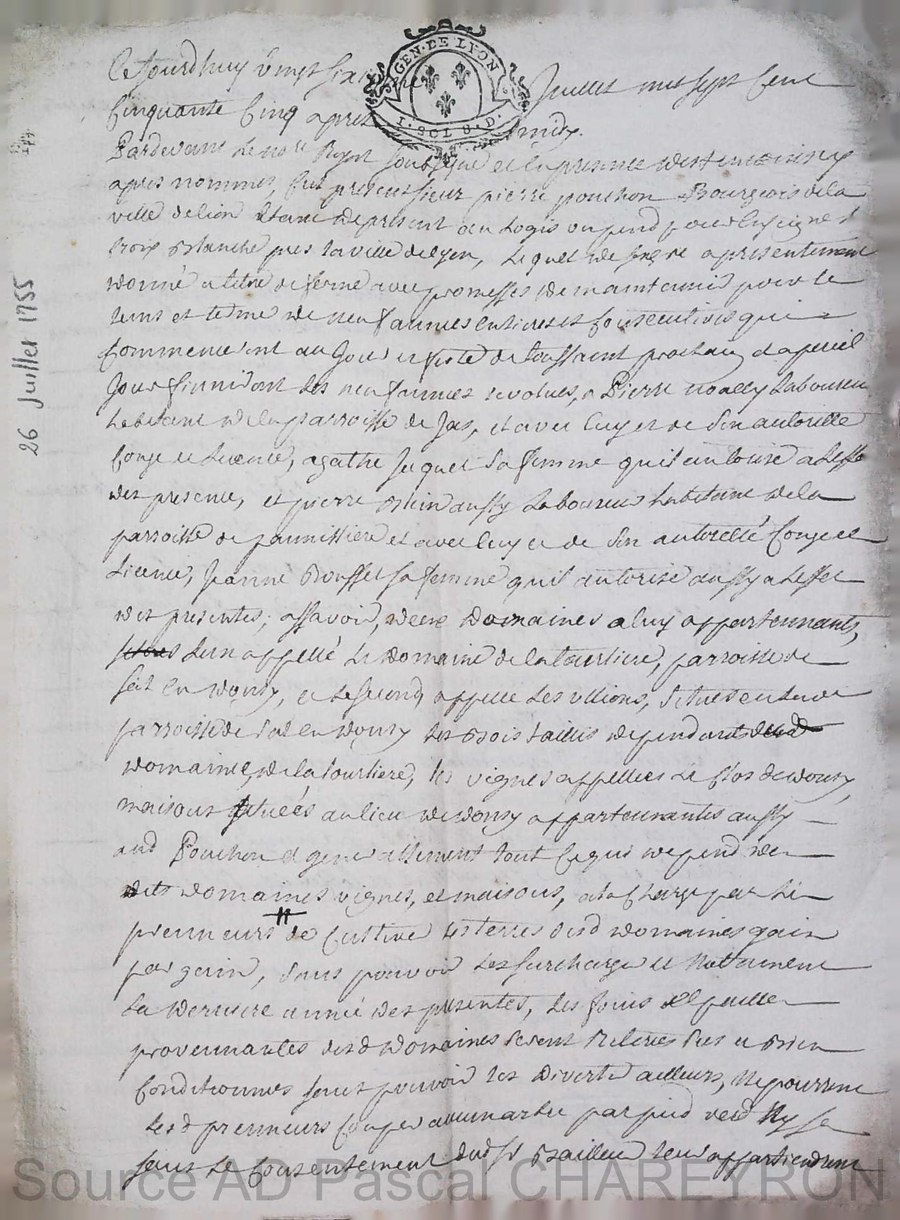 Ce Jourdhuy vingt sixieme Juillet mil sept cent
GEN·DE LYON
I·SOL 8·D·
Cinquante Cinq apres midy.
Pardevant Le no.re Royal soussigne et en presence des temoins cy
apres nommes, fut present sieur pierre pouchon Bourgeois de la
ville de lion Etant de present au Logis ou pend pour Enseigne la
Croix Blanche pres la ville de lyon, Lequel de gré a presentement
donné a titre de ferme avec promesses de maintenir pour le
tems et terme de neuf années entieres et Consecutives qui
Commenceront au Jour et feste de toussaint prochain et a pareil
Jour finiront Les neuf années revolues, a Pierre noally Laboureur
habitant de la parroisse de Jas, et avec luy et de son autorité
Conge et Licence, agathe Jaquet sa femme qu'il autorise a Leffet
des presente, et pierre Brun aussy Laboureur habitant de la
parroisse de pannissiere et avec luy et de Son autorité Conge et
Licence, Jeanne Bouffet sa femme qu'il autorise aussy a Leffet
des presentes; assavoir, deux Domaines a luy appartennants,
Lun appellé Le Domaine de la tourtiere, parroisse de
salt en donzy, et Le second appellé Les villions, Situés en lad
parroisse de salt en donzy Les bois taillis dependants dud
domaine de la tourtiere, les vignes appellées Le Clos de donzy
maisons situées au lieu de donzy appartennantes aussy
aud Pouchon et generallement tout Ce qui depend des
dits domaines vignes, et maisons, a la Charge par Les
prenneurs de Cultiver Les terres desd domaines gain
par gain, sans pouvoir Les surcharger et Nottament
La derniere année des presentes, Les foins et pailles
provennantes desd domaines seront Retirés secs et bien
Conditionnes sans pouvoir les divertir ailleurs, Ne pourront
Lesd prenneurs Couper aucun arbre par pied verd Ny sec
sans Le Consentement dud sr Bailleur Leur appartiendront
26 Juillet 1755
Source AD Pascal CHAREYRON